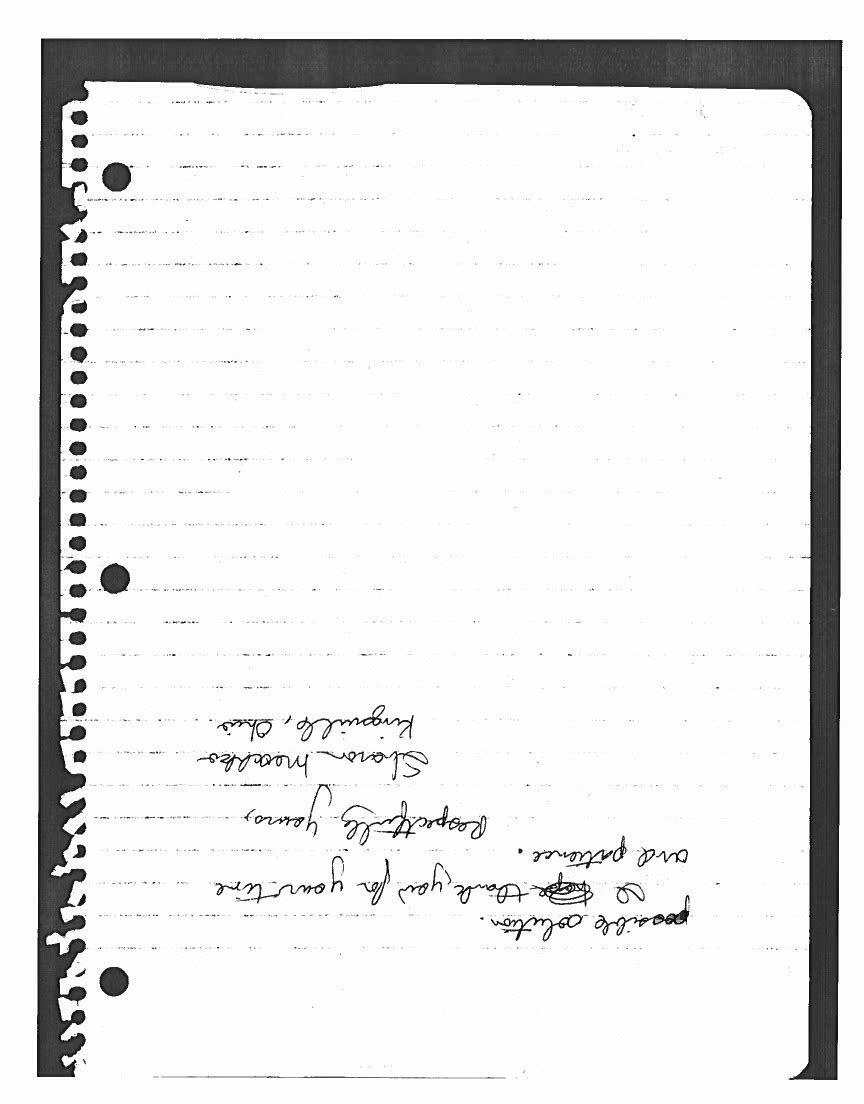 possible solution.
I hope thank you for your time
and patience.
Respectfully yours,
Sharon
Kingsville, Ohio.